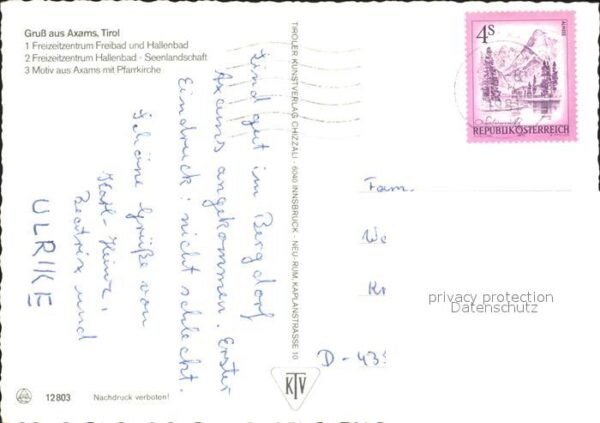 Gruß aus Axams, Tirol
1 Freizeitzentrum Freibad und Hallenbad
2 Freizeitzentrum Hallenbad - Seenlandschaft
3 Motiv aus Axams mit Pfarrkirche
Sind gut im Bergdorf
Axams angekommen. Erster
Eindruck: nicht schlecht.
Schöne Grüße von
Karl-Heinz,
Beatrix und
ULRIKE
TIROLER KUNSTVERLAG CHIZZALI · 6040 INNSBRUCK - NEU-RUM, KAPLANSTRASSE 10
4S
ALMSEE
REPUBLIK ÖSTERREICH
Fam.
We
Kr
D - 435
privacy protection
Datenschutz
KTV
12803
Nachdruck verboten!